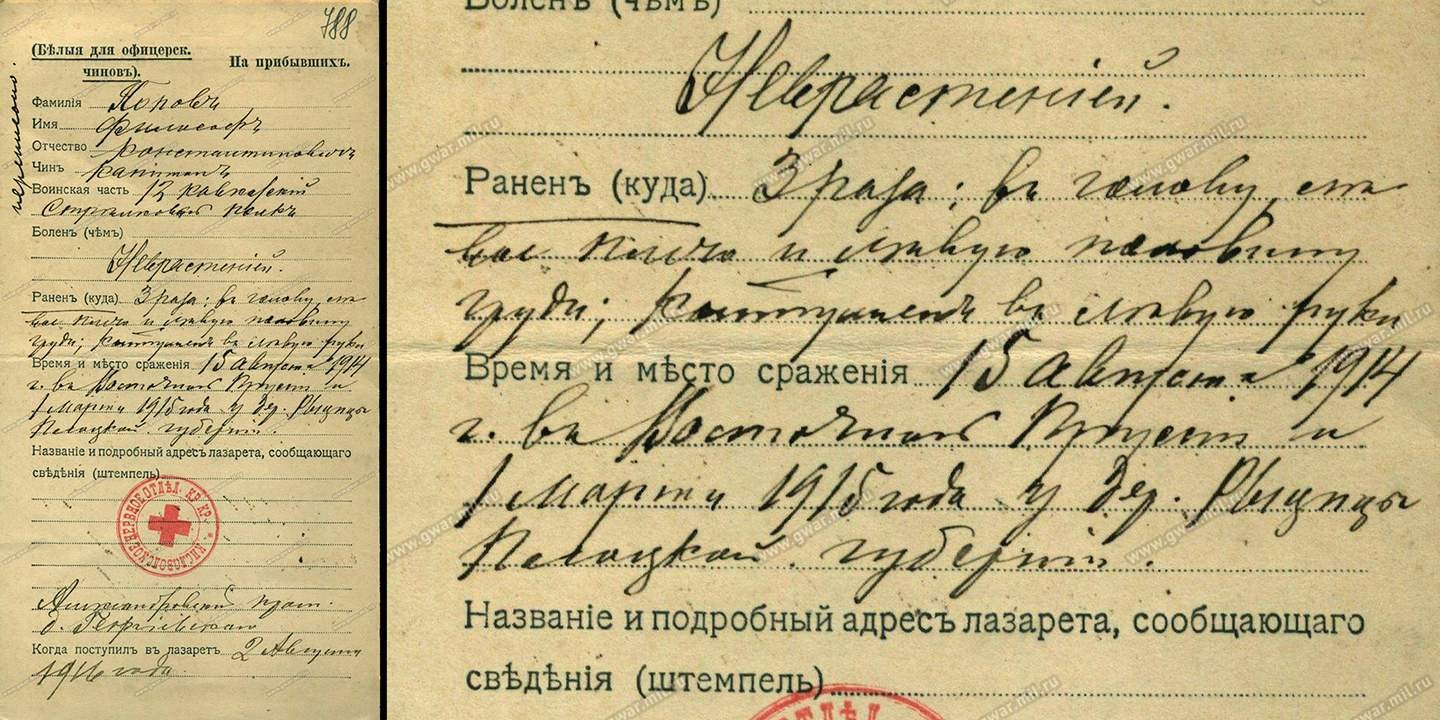 788
(Бѣлыя для офицерск.
чиновъ).
На прибывшихъ.
Фамилія Поповъ
Имя Философъ
Отчество Константиновичъ
Чинъ капитанъ
Воинская часть 12 Кавказскій
Стрѣлковый полкъ
Боленъ (чѣмъ)
Неврастеніей.
Раненъ (куда) 3 раза; въ голову, лѣ
вое плечо и лѣвую половину
груди; контуженъ въ лѣвую руку
Время и мѣсто сраженія 15 Августа 1914
г. въ Восточной Пруссіи и
1 Марта 1915 года у дер.
губерніи.
Названіе и подробный адресъ лазарета, сообщающаго
свѣдѣнія (штемпель)
КИСЛОВОДСКОЕ НЕРВНОЕ ОТДѢЛ. КР. КР.
Александровскій
д. Георгіевскаго
Когда поступилъ въ лазаретъ 2 Августа
1916 года
Боленъ (чѣмъ)
Неврастеніей.
Раненъ (куда) 3 раза; въ голову, лѣ
вое плечо и лѣвую половину
груди; контуженъ въ лѣвую руку
Время и мѣсто сраженія 15 Августа 1914
г. въ Восточной Пруссіи и
1 Марта 1915 года у дер.
губерніи.
Названіе и подробный адресъ лазарета, сообщающаго
свѣдѣнія (штемпель)
www.gwar.mil.ru